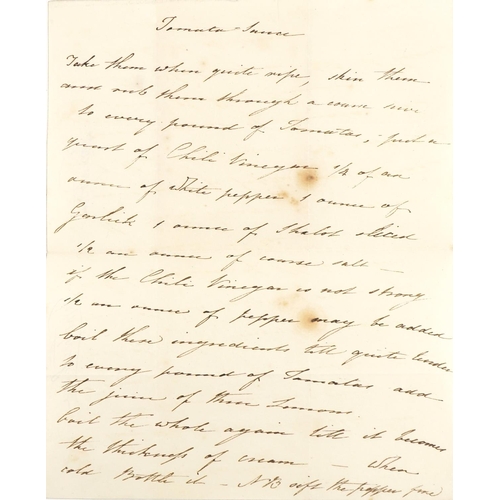 Tomata Sauce
Take them when quite ripe, skin them
and rub them through a coarse sieve
to every pound of Tomatas, put a
quart of Chili Vinegar 1/4 of an
ounce of white pepper 1 ounce of
Garlick 1 ounce of Shalot sliced
1/2 an ounce of coarse salt —
if the Chili Vinegar is not strong
1/2 an ounce of pepper may be added
boil these ingredients till quite tender
to every pound of Tomatas add
the juice of three Lemons.
boil the whole again till it becomes
the thickness of cream — When
cold Bottle it — NB sift the pepper fine